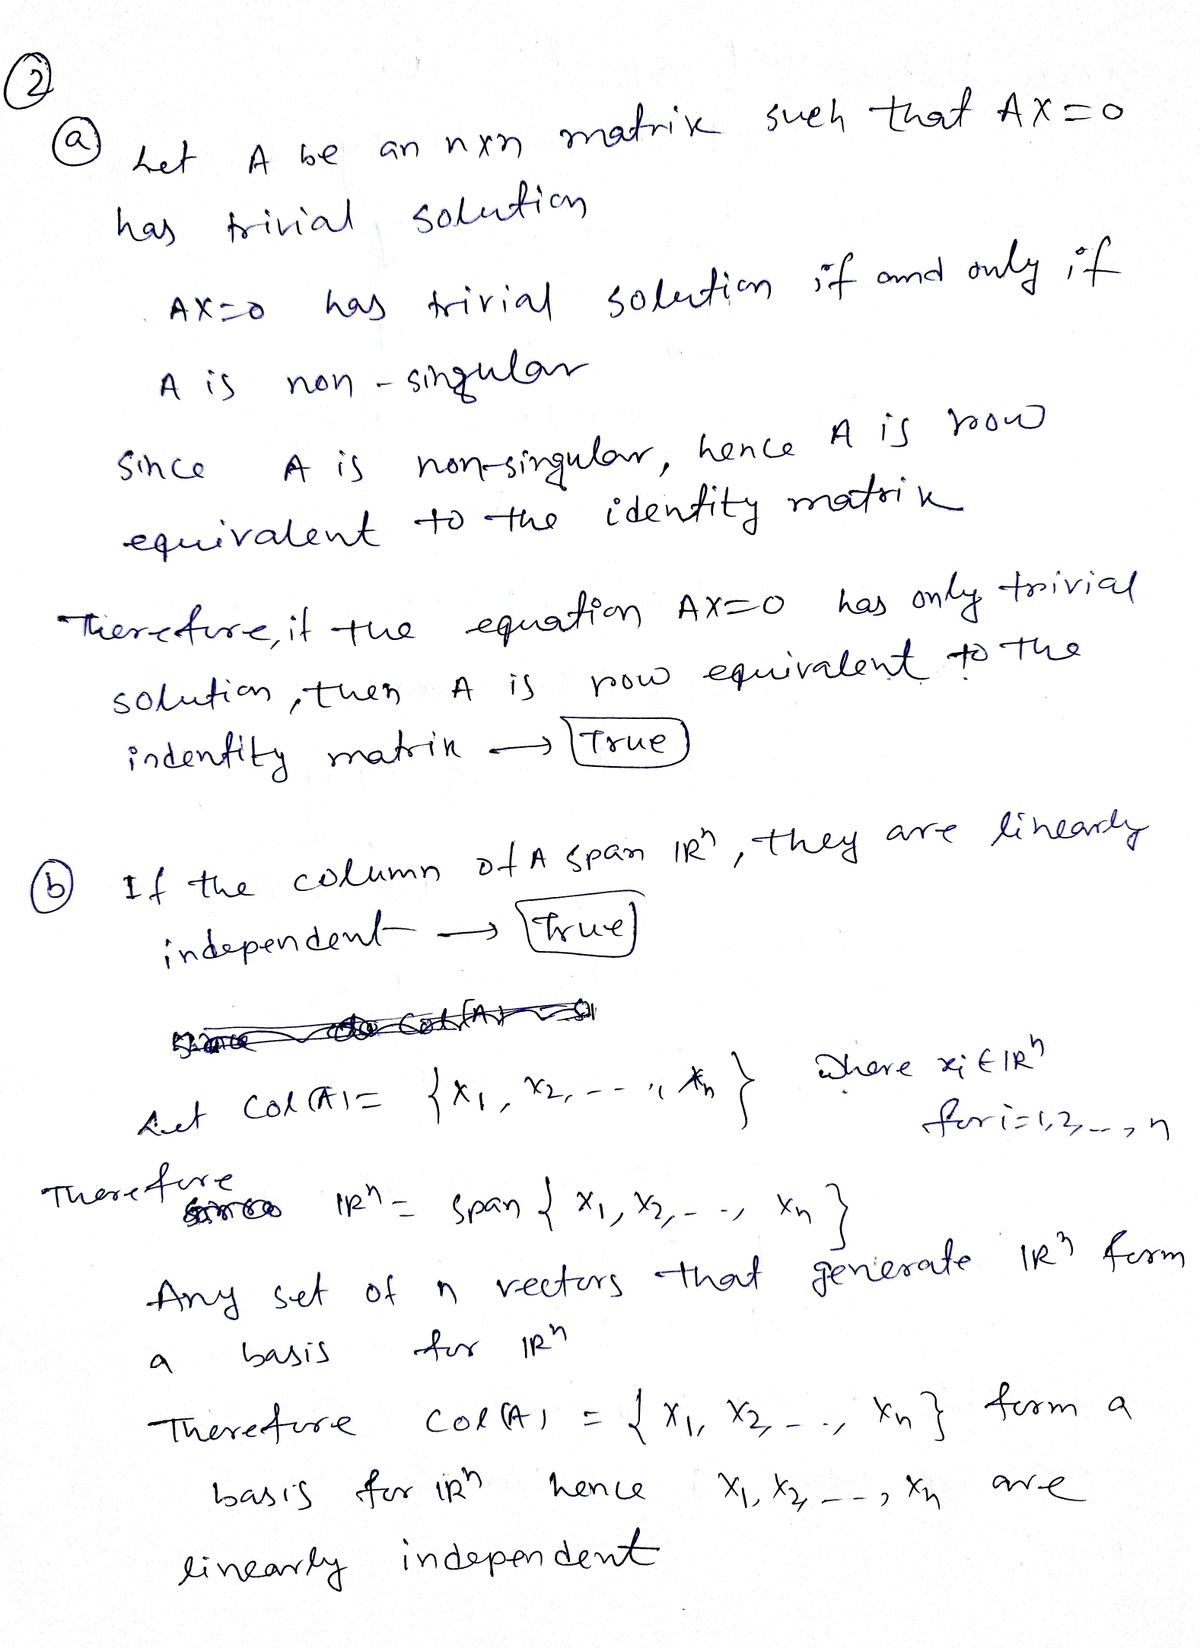 2
a Let A be an n×n matrix such that AX=0
has trivial solution
AX=0 has trivial solution if and only if
A is non-singular
Since A is non-singular, hence A is row
equivalent to the identity matrix
Therefore, if the equation AX=0 has only trivial
solution, then A is row equivalent to the
indentity matrix → True
b If the column of A span ℝⁿ, they are linearly
independent → True
Let Col(A) = {x₁, x₂, ---, xₙ} where xᵢ ∈ ℝⁿ
for i=1,2,--, n
Therefore ℝⁿ = span {x₁, x₂, - -, xₙ}
Any set of n vectors that generate ℝⁿ form
a basis for ℝⁿ
Therefore Col(A) = {x₁, x₂, - -, xₙ} form a
basis for ℝⁿ hence x₁, x₂, ---, xₙ are
linearly independent